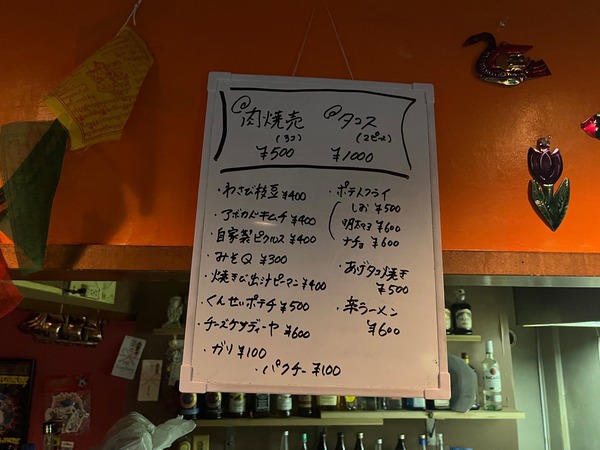 @肉焼売
(3コ)
¥500
@タコス
(2ピース)
¥1000
・わさび枝豆 ¥400
・アボカドキムチ ¥400
・自家製ピクルス ¥400
・みそQ ¥300
・焼きび出汁ピーマン ¥400
・くんせいポテチ ¥500
・チーズケサディーヤ ¥600
・ガリ ¥100
・パクチー ¥100
・ポテトフライ
しお ¥500
明太マヨ ¥600
ナチョ ¥600
・あげタコ焼き
¥500
・楽ラーメン
¥600